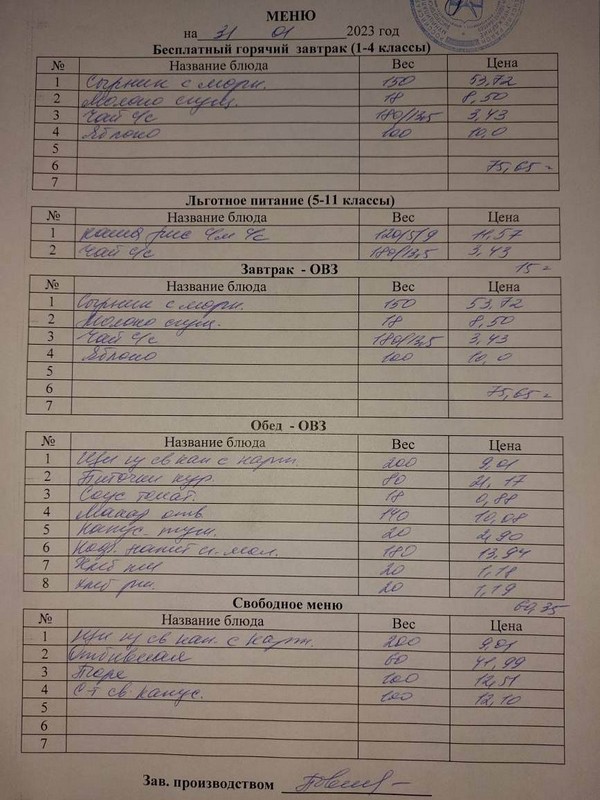 МЕНЮ
на 31 01 2023 год
Бесплатный горячий завтрак (1-4 классы)
№ Название блюда Вес Цена
1 Сырник с морк. 150 53,72
2 Молоко сгущ. 18 8,50
3 Чай с/с 180/13,5 3,43
4 Яблоко 100 10,0
5
6 75,65 =
7
Льготное питание (5-11 классы)
№ Название блюда Вес Цена
1 каша рис с/м с/с 120/5/9 11,57
2 Чай с/с 180/13,5 3,43
Завтрак - ОВЗ 15 =
№ Название блюда Вес Цена
1 Сырник с морк. 150 53,72
2 Молоко сгущ. 18 8,50
3 Чай с/с 180/13,5 3,43
4 Яблоко 100 10,0
5
6 75,65 =
7
Обед - ОВЗ
№ Название блюда Вес Цена
1 Щи из св кап с карт. 200 9,01
2 Биточки кур. 80 21,17
3 Соус томат. 18 0,88
4 Макар отв 140 10,08
5 Капус. туш. 20 2,90
6 Коф. напит с мол. 180 13,94
7 Хлеб пш 20 1,18
8 Хлеб рж. 20 1,19
Свободное меню 60,35
№ Название блюда Вес Цена
1 Щи из св кап. с карт. 200 9,01
2 Отбивная 60 41,99
3 Пюре 100 12,51
4 С-т св. капус. 100 12,10
5
6
7
Зав. производством